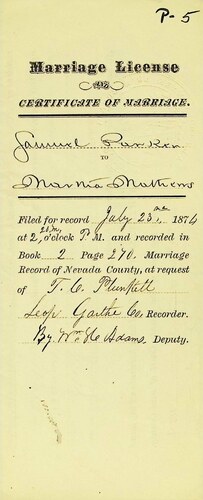 P-5
Marriage License
AND
CERTIFICATE OF MARRIAGE.
Samuel Parker
TO
Martha Mathews
Filed for record July 23 1874
at 2, o'clock P.M. and recorded in
Book 2 Page 270. Marriage
Record of Nevada County, at request
of T. C. Plunkett
Leop Garthe Co, Recorder.
By Wm H Adams, Deputy.